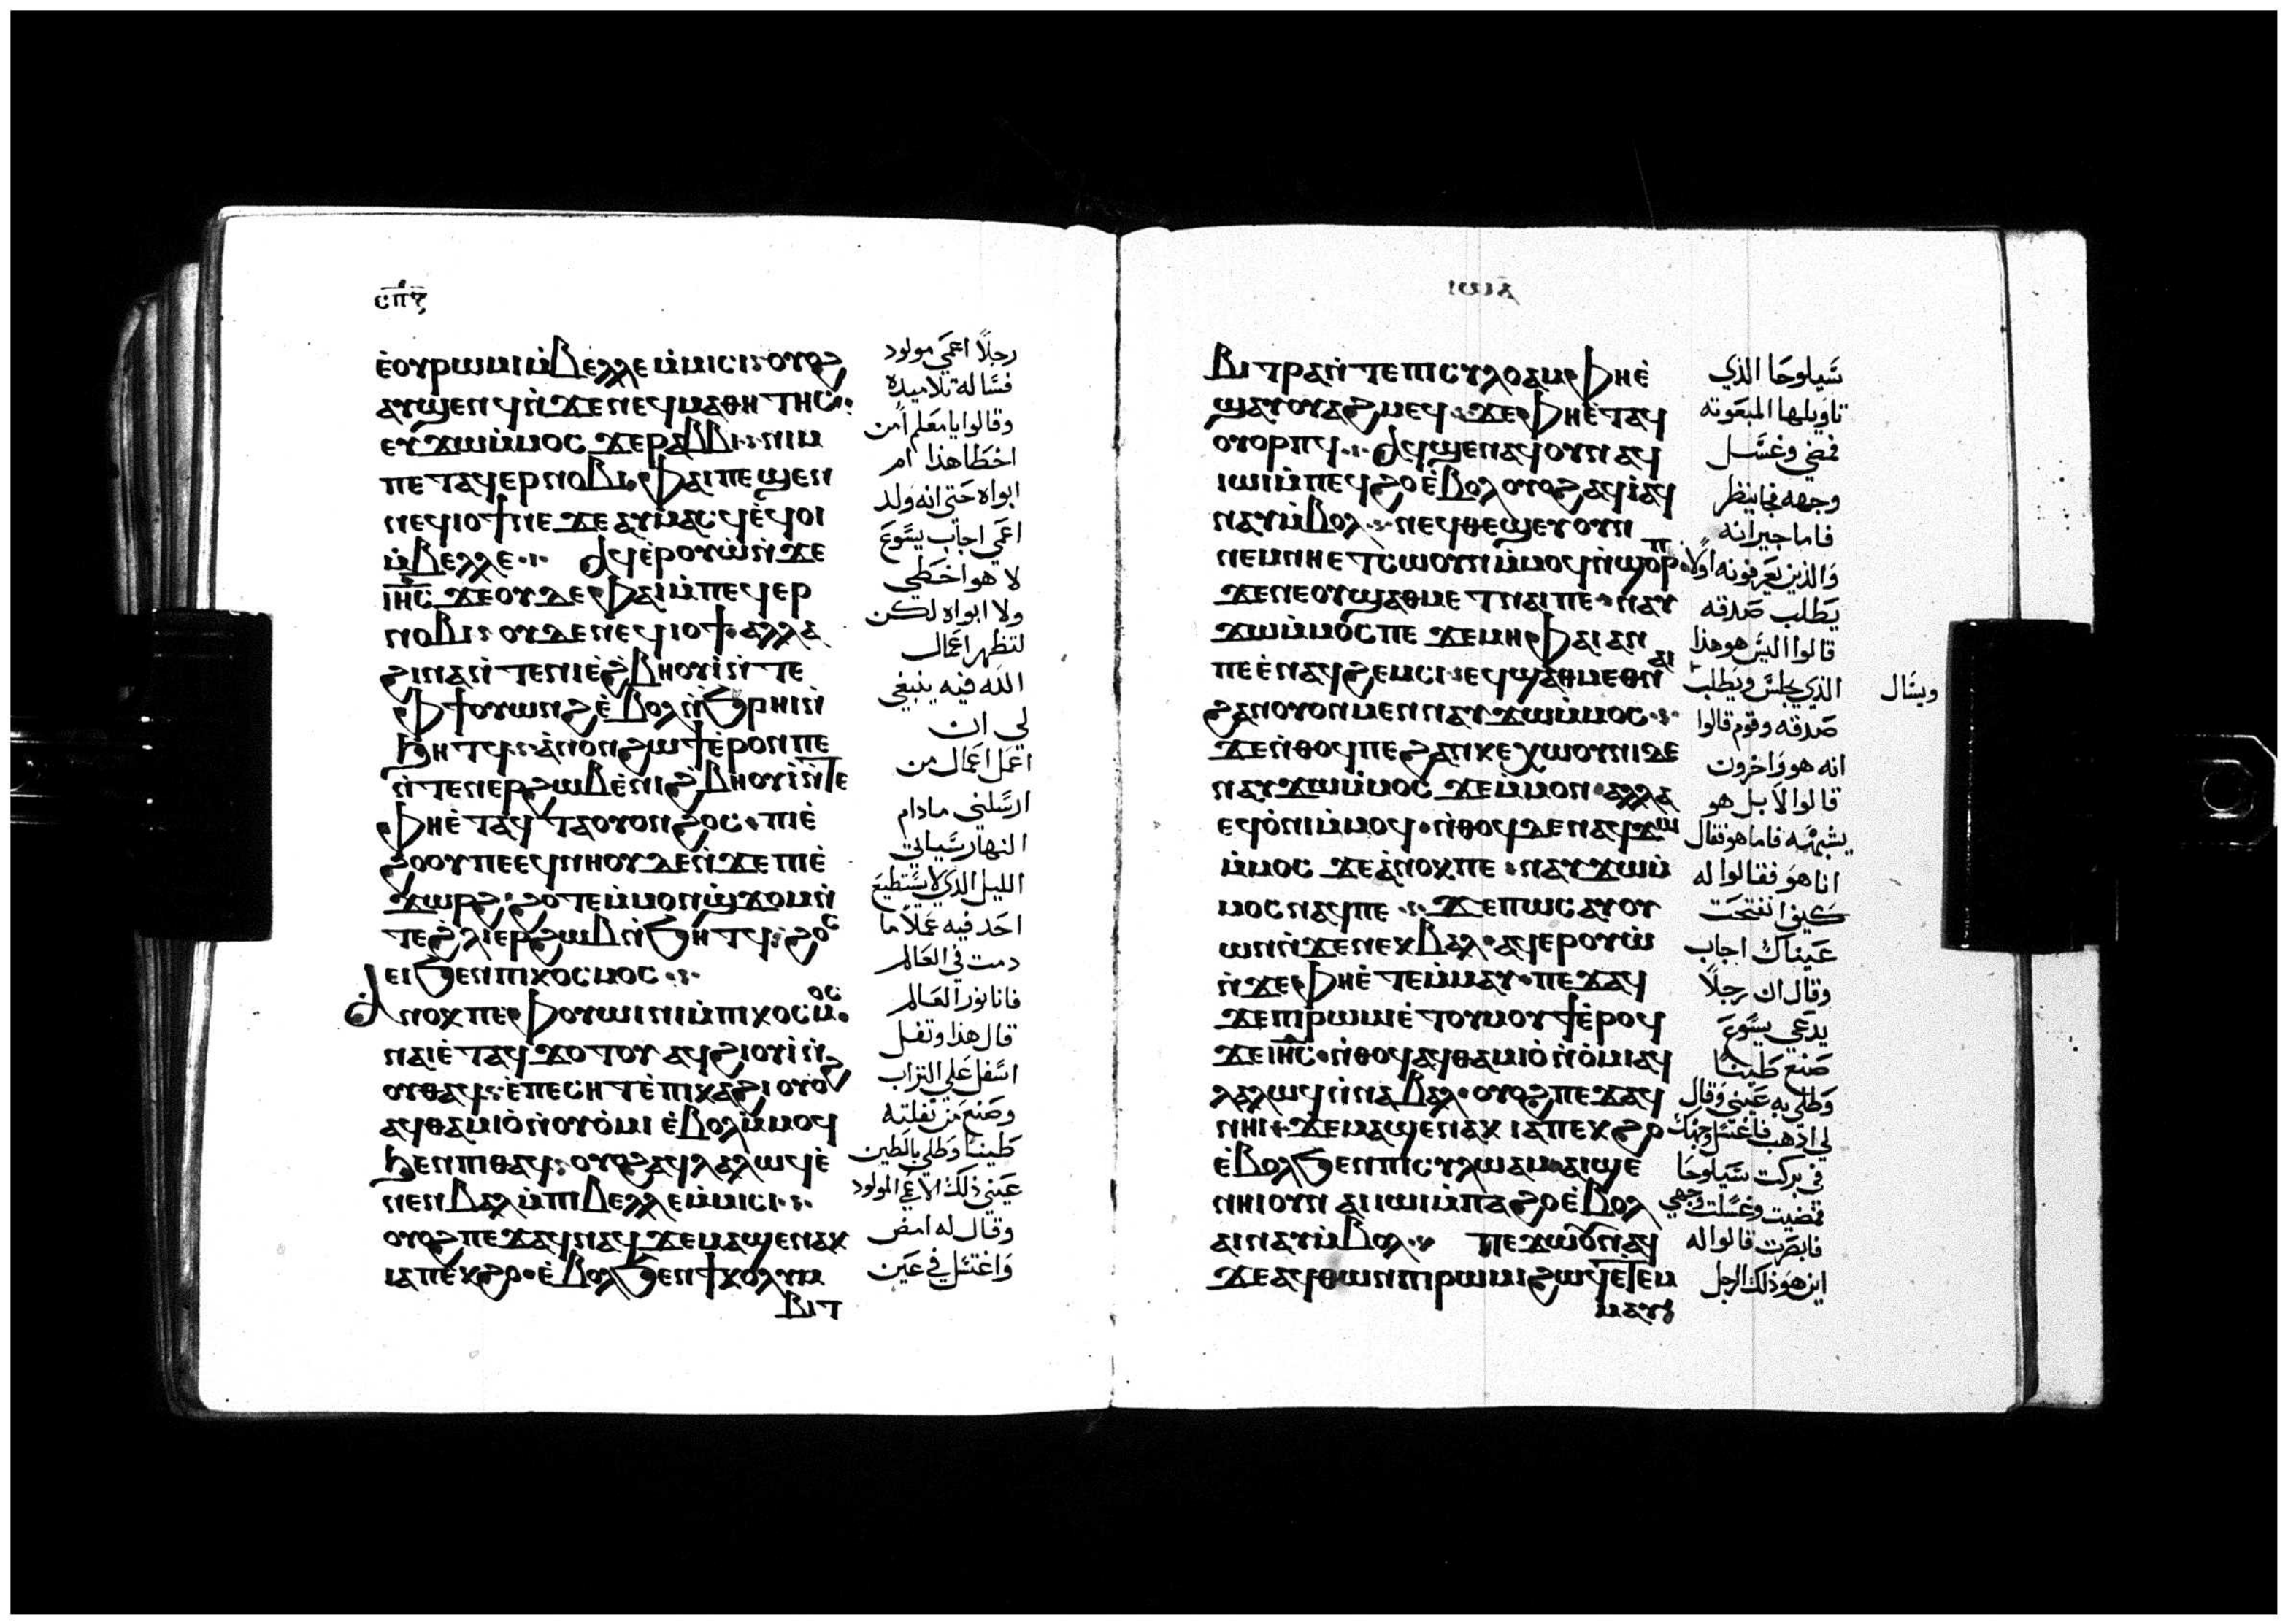 ⲥⲡⲋ
ⲉ̀ⲟⲩⲣⲱⲙⲓⲙ̀ⲃⲉⲗⲗⲉⲙ̀ⲙⲓⲥⲓ⳾ⲟⲩⲟϩ
ⲁⲩϣⲉⲛϥⲛ̀ϫⲉⲛⲉϥⲙⲁⲑⲏⲧⲏⲥ⳾
ⲉⲩϫⲱⲙ̀ⲙⲟⲥ ϫⲉⲣⲁⲃⲃⲓ⳾ⲛⲓⲙ
ⲡⲉⲧⲁϥⲉⲣⲛⲟⲃⲓ⳾ⲫⲁⲓⲡⲉϣⲉⲛ
ⲛⲉϥⲓⲟϯⲛⲉ ϫⲉⲁⲩⲙⲁⲥϥⲉ̀ϥⲟⲓ
ⲙ̀ⲃⲉⲗⲗⲉ⳾ ⲁϥⲉ̀ⲣⲟⲩⲱ̀ⲛ̀ϫⲉ
ⲓⲏ̅ⲥ̅ ϫⲉⲟⲩⲇⲉⲫⲁⲓⲙ̀ⲡⲉϥⲉⲣ
ⲛⲟⲃⲓ⳾ ⲟⲩⲇⲉⲛⲉϥⲓⲟϯ⳾ⲁⲗⲗⲁ
ϩⲓⲛⲁⲛ̀ⲧⲉⲛⲓⲉ̀ϩⲃⲏⲟⲩⲓ̀ⲛ̀ⲧⲉ
ⲫϯⲟⲩⲱⲛϩⲉ̀ⲃⲟⲗⲛ̀ϧⲣⲏⲓⲛ̀
ϧⲏⲧϥ⳾ⲁ̀ⲛⲟⲛϩⲱϯⲉ̀ⲣⲟⲛⲡⲉ
ⲛ̀ⲧⲉⲛⲉⲣϩⲱⲃⲉ̀ⲛⲓϩⲃⲏⲟⲩⲓ̀ⲛ̀ⲧⲉ
ⲫⲏⲉ̀ⲧⲁϥⲧⲁⲟⲩⲟⲛϩⲟⲥ⳾ⲡⲓⲉ̀
ϩⲟⲟⲩⲡⲉⲉϥⲛⲏⲟⲩⲇⲉⲛ̀ϫⲉⲡⲓⲉ̀
ϫⲱⲣϩ⳾ϩⲟⲧⲉⲙ̀ⲙⲟⲛϣ̀ϫⲟⲙⲛ̀
ⲧⲉϩⲗⲓⲉⲣϩⲱⲃⲛ̀ϧⲏⲧϥ⳾ϩⲟⲥ
ⲉⲓϧⲉⲛⲡⲓⲕⲟⲥⲙⲟⲥ⳾
ⲁⲛⲟⲕⲡⲉⲫⲟⲩⲱⲓⲛⲓⲙ̀ⲡⲓⲕⲟⲥⲙⲟⲥ
ⲛⲁⲓⲉ̀ⲧⲁϥϫⲟⲧⲟⲩ ⲁϥϩⲓⲟⲩⲓ̀ⲛ̀
ⲟⲩⲑⲁϥ⳾ⲉ̀ⲡⲉⲥⲏⲧⲉ̀ⲡⲓⲕⲁϩⲓⲟⲩⲟϩ
ⲁϥⲑⲁⲙⲓⲟ̀ⲛ̀ⲟⲩⲟ̀ⲙⲓ ⲉ̀ⲃⲟⲗⲙ̀ⲙⲟϥ
ϧⲉⲛⲡⲓⲑⲁϥ⳾ⲟⲩⲟϩⲁϥⲗⲁⲗⲱϥⲉ̀
ⲛⲉⲛⲃⲁⲗⲙ̀ⲡⲓⲃⲉⲗⲗⲉⲙ̀ⲙⲓⲥⲓ⳾
ⲟⲩⲟϩⲡⲉϫⲁϥⲛⲁϥϫⲉⲙⲁϣⲉⲛⲁⲕ
ⲓⲁⲡⲉⲕϩⲟ⳾ⲉ̀ⲃⲟⲗϧⲉⲛϯⲕⲟⲗⲩⲙ
ⲃⲓⲧ
رجلًا اعمي مولود
فسَاله تلاميذه
وقالوا يا معلم امن
اخطا هذا ام
ابواه حتي انه ولد
اعمي اجاب يسوع
لا هو اخطي
ولا ابواه لكن
لتظهر اعمال
الله فيه ينبغي
لي ان
اعمل اعمال من
ارسلني مادام
النهار سَياتي
الليل الذي لا يستطيع
احد فيه عملًا ما
دمت في العالم
فانا نور العالم
قال هذا وتفل
اسفل علي التراب
وصنع من تفلته
طينًا وطلي بالطين
عيني ذلك الاعمي المولود
وقال له امض
واغتسل في عين
ⲓⲱⲁ
ⲃⲓⲧⲣⲁⲛ̀ⲧⲉⲡⲓⲥⲩⲗⲟⲁⲙ⳾ⲫⲏⲉ̀
ϣⲁⲩⲟⲩⲁϩⲙⲉϥ⳾ϫⲉⲫⲏⲉ̀ⲧⲁϥ
ⲟⲩⲟⲣⲡϥ⳾ ⲁϥϣⲉⲛⲁϥⲟⲩⲛⲁϥ
ⲓⲱⲓⲙ̀ⲡⲉϥϩⲟⲉ̀ⲃⲟⲗⲟⲩⲟϩⲁϥⲓ̀ⲁϥ
ⲛⲁⲩⲙ̀ⲃⲟⲗ⳾ⲛⲉϥⲑⲉϣⲉⲩⲟⲩⲛ
ⲛⲉⲙⲛⲏⲉⲧⲥⲱⲟⲩⲛⲙ̀ⲙⲟϥⲛ̀ϣⲟⲣⲡ
ϫⲉⲛⲉⲟⲩϣⲁⲑⲙⲉⲧⲛⲁⲓⲡⲉ⳾ⲛⲁⲩ
ϫⲱⲙ̀ⲙⲟⲥⲡⲉ ϫⲉⲙⲏⲫⲁⲓⲁⲛ
ⲡⲉⲉ̀ⲛⲁϥϩⲉⲙⲥⲓ⳾ⲉϥϣⲁⲑⲙⲉⲑⲛⲁⲓ
ϩⲁⲛⲟⲩⲟⲛⲙⲉⲛⲛⲁⲩϫⲱⲙ̀ⲙⲟⲥ⳾
ϫⲉⲛ̀ⲑⲟϥⲡⲉϩⲁⲛⲕⲉⲭⲱⲟⲩⲛⲓⲇⲉ
ⲛⲁⲩϫⲱⲙ̀ⲙⲟⲥ ϫⲉⲙ̀ⲙⲟⲛ⳾ⲁⲗⲗⲁ
ⲉϥⲟ̀ⲛⲓⲙ̀ⲙⲟϥ⳾ⲛ̀ⲑⲟϥⲇⲉⲛⲁϥϫⲱ
ⲙ̀ⲙⲟⲥ ϫⲉⲁ̀ⲛⲟⲕⲡⲉ⳾ⲛⲁⲩϫⲱⲙ̀
ⲙⲟⲥⲛⲁϥⲡⲉ⳾ϫⲉⲡⲱⲥⲁⲩⲟⲩ
ⲱⲛⲛ̀ϫⲉⲛⲉⲕⲃⲁⲗ⳾ⲁϥⲉⲣⲟⲩⲱ̀
ⲛ̀ϫⲉⲫⲏⲉ̀ⲧⲉⲙ̀ⲙⲁⲩ⳾ⲡⲉϫⲁϥ
ϫⲉⲡⲓⲣⲱⲙⲓⲉ̀ⲧⲟⲩⲙⲟⲩϯⲉ̀ⲣⲟϥ
ϫⲉⲓⲏ̅ⲥ̅⳾ⲛ̀ⲑⲟϥⲁϥⲑⲁⲙⲓⲟ̀ⲛ̀ⲟ̀ⲙⲓⲁϥ
ⲗⲁⲗⲱϥⲛ̀ⲛⲁⲃⲁⲗ⳾ⲟⲩⲟϩⲡⲉϫⲁϥ
ⲛⲏⲓ⳾ϫⲉⲙⲁϣⲉⲛⲁⲕ ⲓⲁⲡⲉⲕϩⲟ
ⲉ̀ⲃⲟⲗϧⲉⲛⲡⲓⲥⲩⲗⲱⲁⲙ⳾ⲁⲓϣⲉ
ⲛⲏⲓⲟⲩⲛ ⲁⲓⲓⲱⲓⲙ̀ⲡⲁϩⲟⲉ̀ⲃⲟⲗ
ⲁⲓⲛⲁⲩⲙ̀ⲃⲟⲗ⳾ ⲡⲉϫⲱⲟⲩⲛⲁϥ
ϫⲉⲁϥⲑⲱⲛⲡⲓⲣⲱⲙⲓϩⲱϥⲉⲧⲉⲙ
ⲙⲁⲩ⳾
سَيلوحا الذي
تاويلها المبعوثه
فمضي وغسل
وجهه فجا ينظر
فاما جيرانه
والذين يعرفونه اولًا
يطلب صدقه
قالوا اليس هو هذا
الذي يجلس ويطلب
ويسَال
صدقه وقوم قالوا
انه هو واخرون
قالوا لا بل هو
يشبهه فاما هو فقال
انا هو فقالوا له
كيف انفتحت
عيناك اجاب
وقال ان رجلًا
يدعي يسوع
صنع طينًا
وطلي به عيني وقال
لي اذهب فاغتسل وجهك
في بركت سَيلوحا
فمضيت وغسلت وجهي
فابصرت قالوا له
اين هو ذلك الرجل